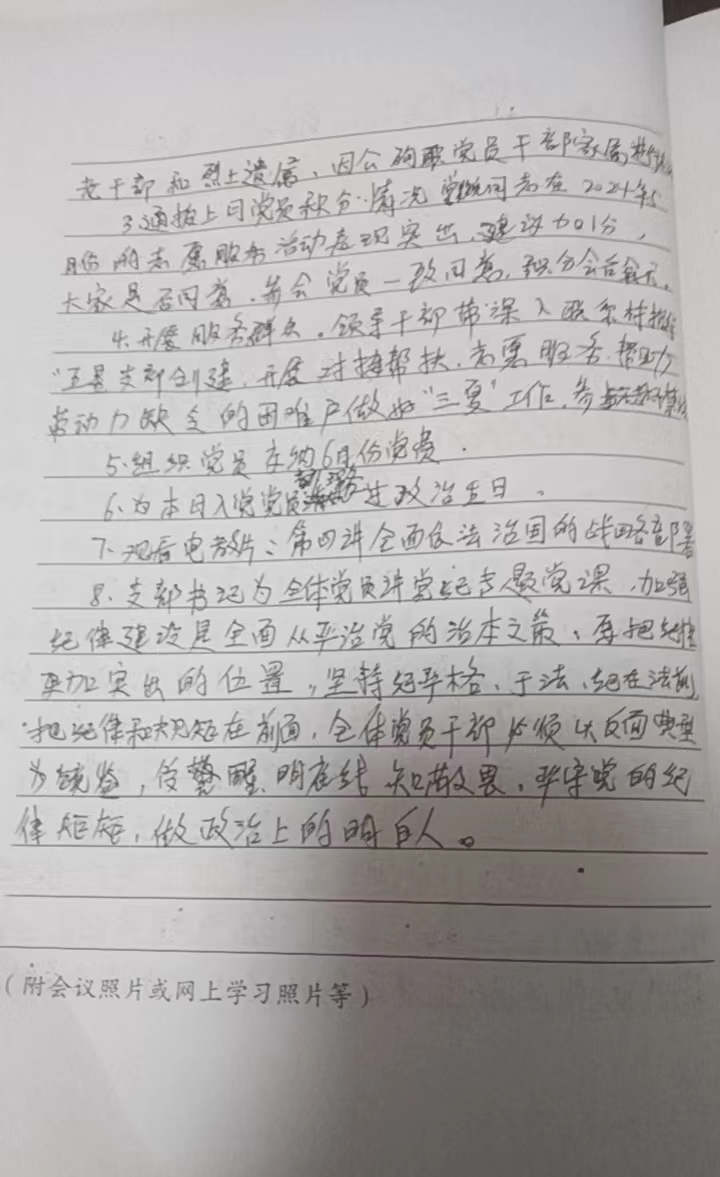 老干部和烈士遗属、因公殉职党员干部家属
3.通报上月党员积分情况 同志在2024年5
月份的志愿服务活动表现突出,建议加01分,
大家是否同意.与会党员一致同意,积分会后公示.
4.开展服务群众.领导干部带课入 村指导
"五星支部创建,开展对接帮扶.志愿服务.帮助
劳动力缺乏的困难户做好"三夏"工作.参与
5.组织党员交纳6月份党费.
6.为本月入党党员 过政治生日.
7.观看电教片:第四讲全面依法治国的战略部署
8.支部书记为全体党员讲党纪专题党课.加强
纪律建设是全面从严治党的治本之策、要把纪律
更加突出的位置,坚持纪严格、于法、纪在法前,
把纪律和规矩在前面,全体党员干部必须以反面典型
为镜鉴,受警醒、明底线 知敬畏,严守党的纪
律矩矩,做政治上的明白人。
(附会议照片或网上学习照片等)